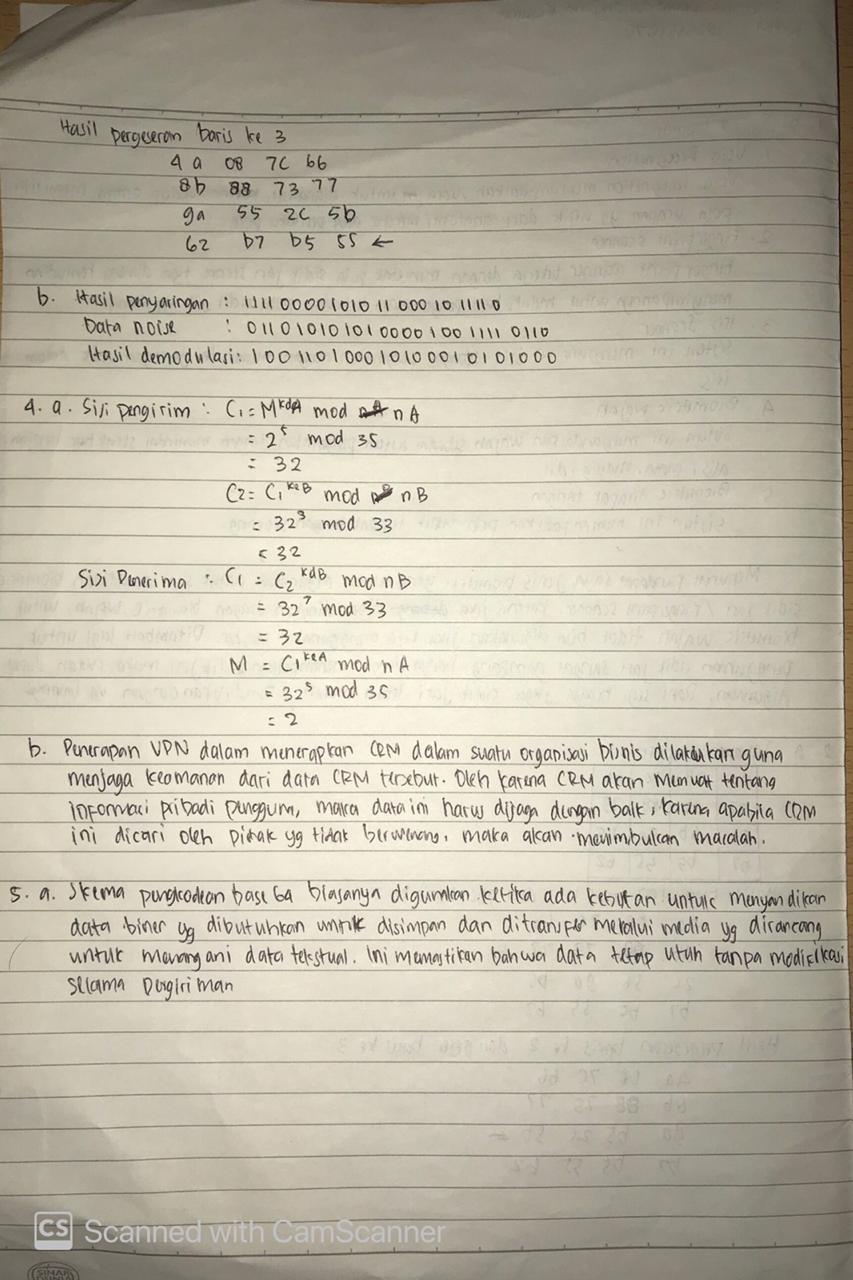 Hasil pergeseran baris ke 3
4a 08 7c 66
8b 88 73 77
9a 55 2c 5b
62 b7 b5 55 ←
b. Hasil penyaringan : 1111 0000 1010 11 000 10 11110
Data noise : 0110 1010 1010 0000 1 00 1111 0110
Hasil demodulasi: 1 00 1101 0001 0100 010 10 1000
4. a. Sisi pengirim : C1 = M^KdA mod nA
= 2^5 mod 35
= 32
C2 = C1^KeB mod nB
= 32^3 mod 33
= 32
Sisi Penerima : C1 = C2^KdB mod nB
= 32^7 mod 33
= 32
M = C1^KeA mod nA
= 32^5 mod 35
= 2
b. Penerapan VPN dalam menerapkan CRM dalam suatu organisasi bisnis dilakukan guna
menjaga keamanan dari data CRM tersebut. Oleh karena CRM akan memuat tentang
informasi pribadi pengguna, maka data ini harus dijaga dengan baik, karena apabila CRM
ini dicari oleh pihak yg tidak berwenang, maka akan menimbulkan masalah.
5. a. Skema pengkodean base 64 biasanya digunakan ketika ada kebutan untuk menyandikan
data biner yg dibutuhkan untuk disimpan dan ditransfer melalui media yg dirancang
untuk menangani data tekstual. Ini memastikan bahwa data tetap utuh tanpa modifikasi
selama pengiriman
CS Scanned with CamScanner